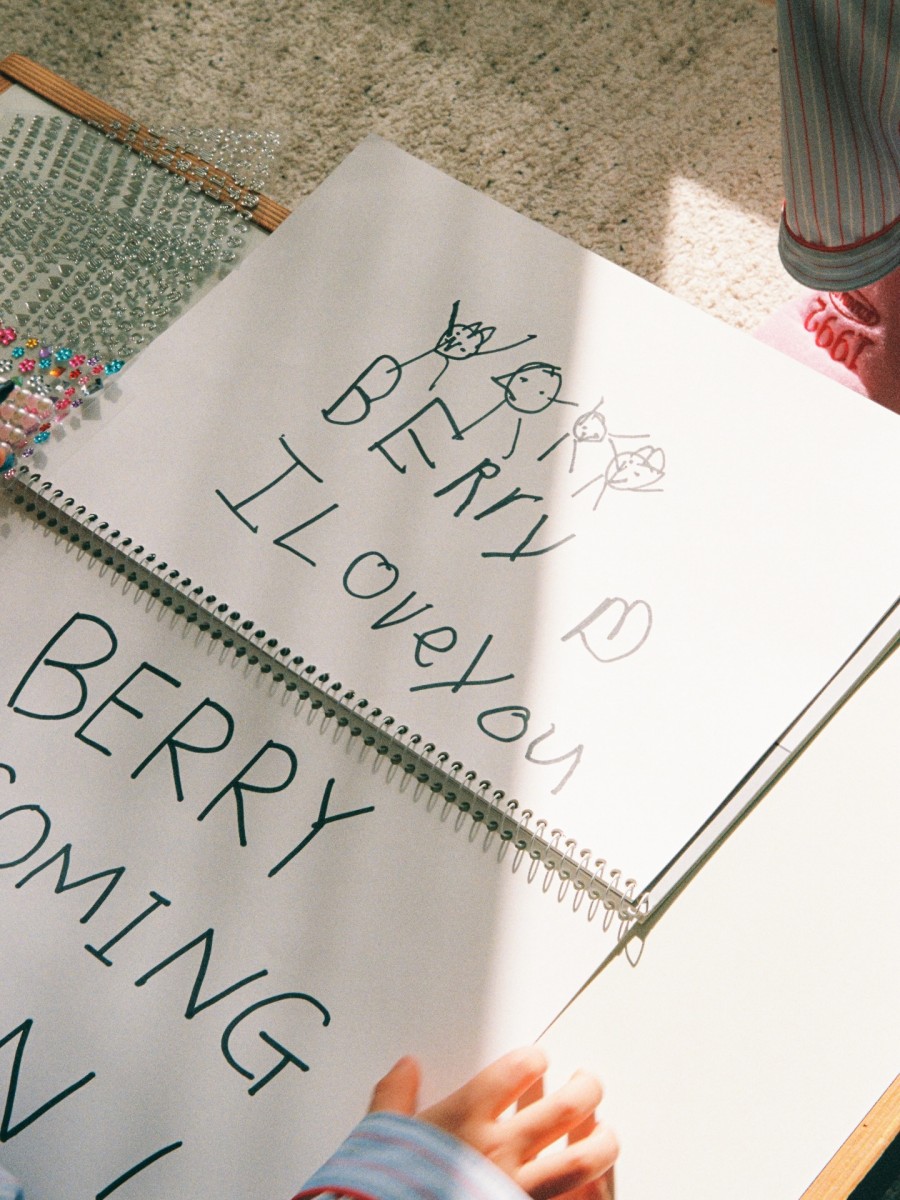 BErry
I Love you
BERRY
COMING
1992